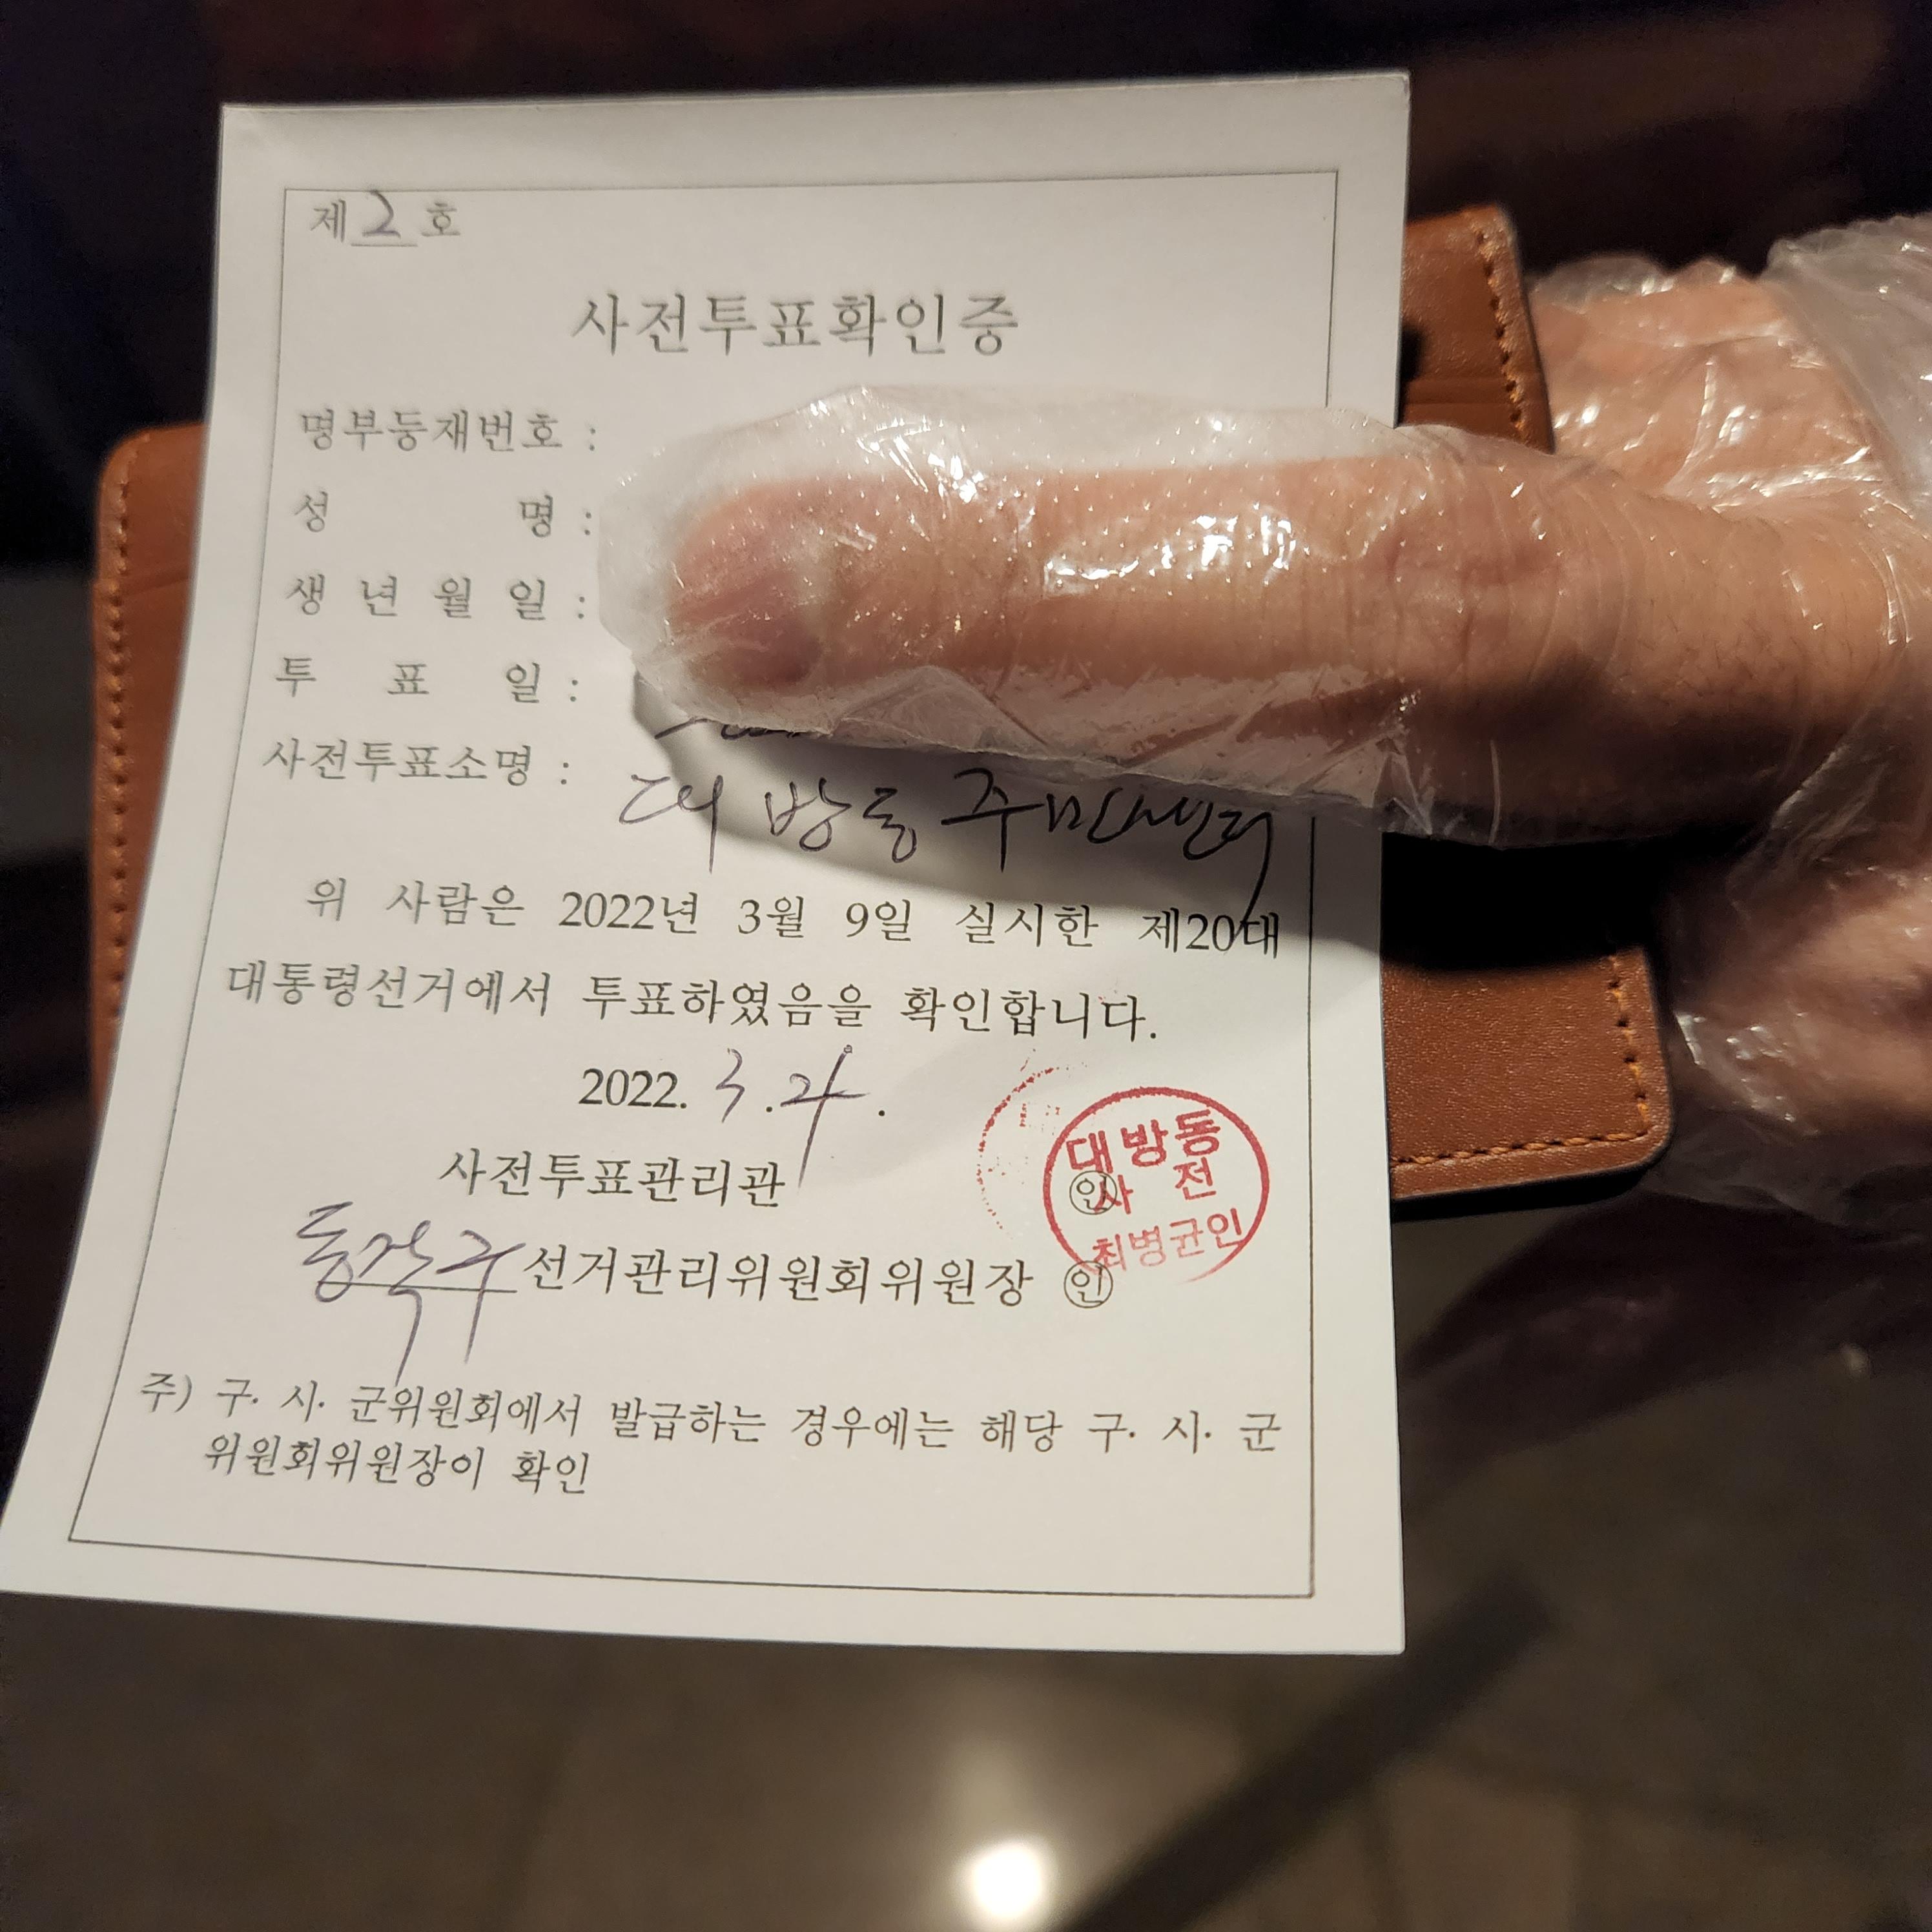 제 2 호
사전투표확인증
명부등재번호 :
성 명 :
생 년 월 일 :
투 표 일 :
사전투표소명 : 대방동주민센터
위 사람은 2022년 3월 9일 실시한 제20대
대통령선거에서 투표하였음을 확인합니다.
2022. 3 . 4 .
사전투표관리관 ㊞
동작구선거관리위원회위원장 ㊞
대방동
사 전
최병균인
주) 구· 시· 군위원회에서 발급하는 경우에는 해당 구· 시· 군
위원회위원장이 확인